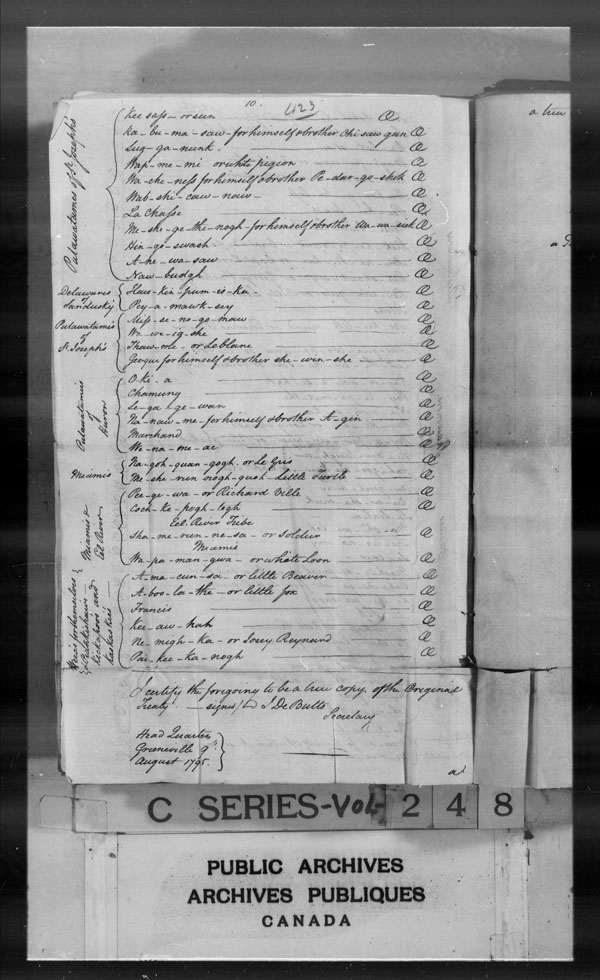 10.
423
Putawatames of St. Josephs
Kee sass - or sun @
Ka - bu - ma - saw - for himself & brother Chi saw gan @
Sug - ga - nunk @
Wap - me - me or white pigeon @
Wa - che - ness for himself & brother Pe - dar - go - shok @
Wab - shi - caw - naw @
La Chasse @
Me - she - ge - the - nogh - for himself & brother Wa - wa - sick @
Hin - go - swash @
A - ne - wa - saw @
Naw - budgh @
Delawares of Sandusky
Haws - kin - pum - is - ka @
Pey - a - mawk - sey @
Putawatamis of St. Joseph's
Miss - se - no - go - maw @
We - we - eg - she @
Thaw - me - or Le blanc @
Geeque for himself & brother she - win - she @
Putawatamis of Huron
O - Ki - a @
Chamung @
Se - ga - ge - wan @
Na - naw - me - for himself & brother A - gin @
Marchand @
We - na - me - ac @
Miamis
Na - goh - quan - gogh - or Le Gris @
Me - she - run - nogh - quoh - Little Turtle @
Miamis & Eel River
Pee - ge - wa - or Richard Ville @
Coch - ke - pogh - togh @
Eel River Tribe
Sha - me - run - ne - sa - or Soldier @
Miamis
Wa - pa - man - gwa - or white Loon @
Weas for themselves & Piankishaws
Kickapoos and
Kaskaskies
A - ma - cun - sa - or little Beaver @
A - boo - la - the - or little fox @
Francis @
Kee - aw - hah @
Ne - migh - ka - or Josey Reynard @
Pai - kee - ka - nogh @
I certify the foregoing to be a true copy of the Original
Treaty signed J De Butts
Secretary
Head Quarters
Greeneville 9th
August 1795.
a
a true
C SERIES - Vol - 2 4 8
PUBLIC ARCHIVES
ARCHIVES PUBLIQUES
CANADA